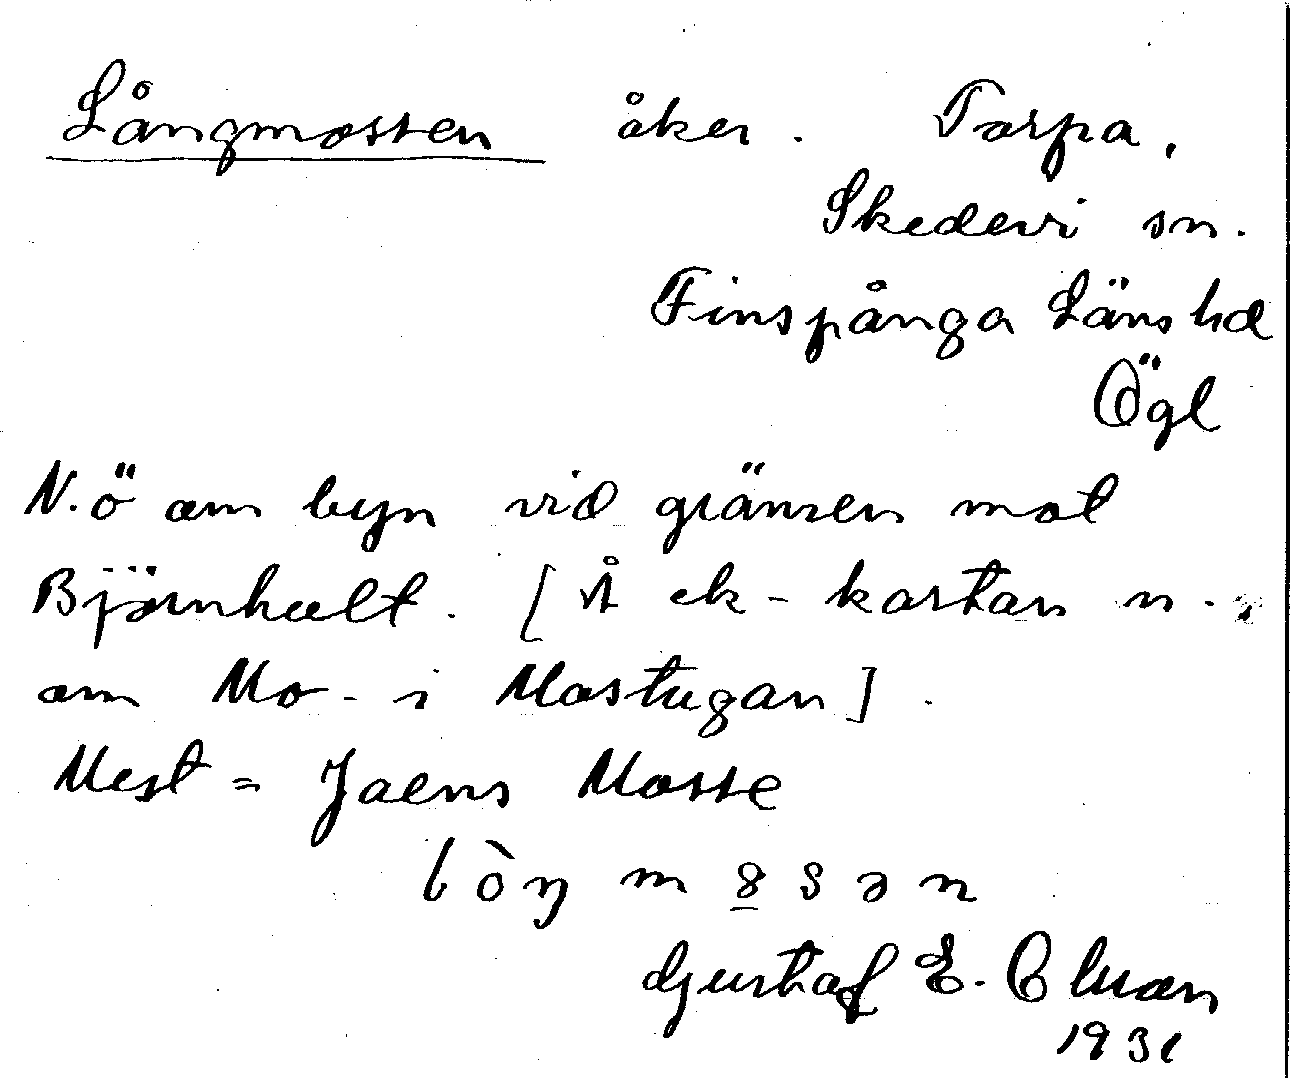 Långmossen åker. Torpa,
Skedevi sn.
Finspånga Läns hd
Ögl
N.ö om byn vid gränsen mot
Björnhult. [Å ek-kartan n.
om Mo- i Mostugan].
Mest = Jaens Mosse
lòŋ m 8 s ə n
Gustaf E.
1931